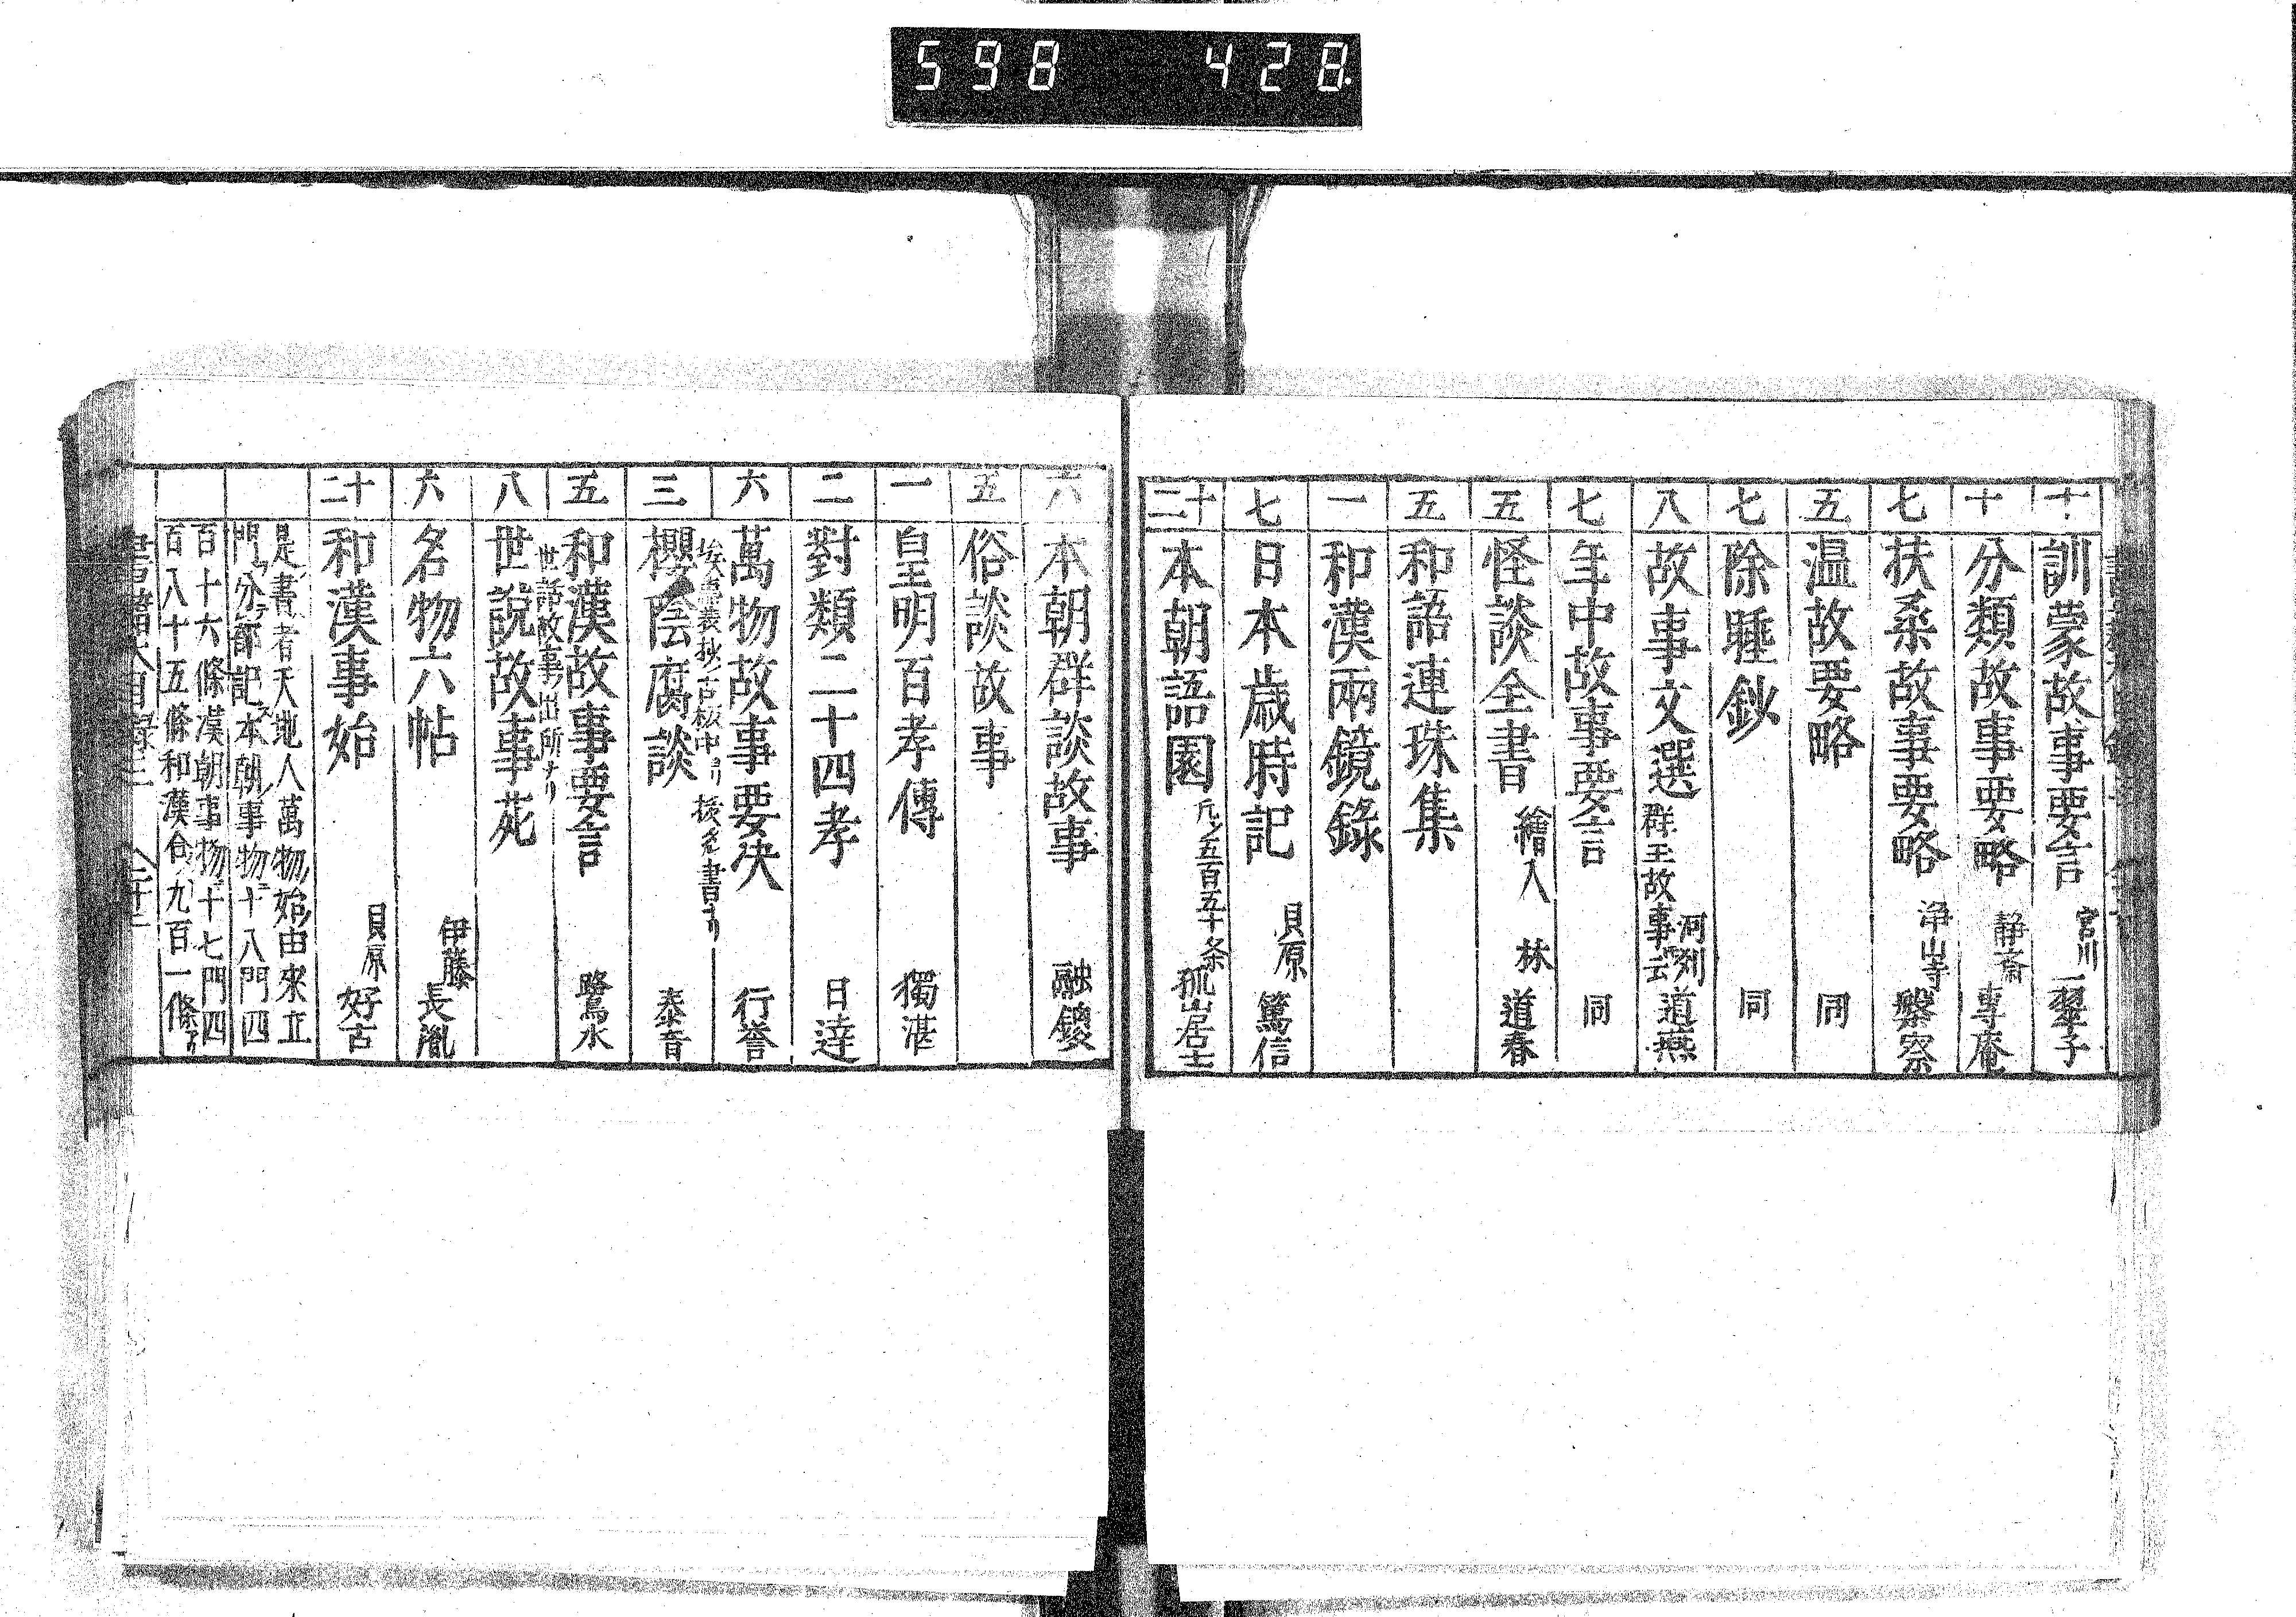 598 428
十 訓蒙故事要言 宮川 一翠子
十 分類故事要略 静斎 専庵
七 扶桑故事要略 浄山寺 繋察
五 温故要略 同
七 除睡鈔 同
八 故事文選 群玉故事云 河州 道燕
七 年中故事要言 同
五 怪談全書 繪入 林 道春
五 和語連珠集
一 和漢兩鏡錄
七 日本歳時記 貝原 篤信
十二 本朝語園 凡ソ五百五十条 孤山居士
六 本朝群談故事 融鑁
五 俗談故事
一 皇明百孝傳 獨湛
二 對類二十四孝 日達
六 萬物故事要決 行誉
三 櫻陰腐談 泰音
五 和漢故事要言 鷺水
世話故事ノ出所ナリ
八 世說故事苑
六 名物六帖 伊藤 長胤
十二 和漢事始 貝原 好古
是書ハ者天地人萬物ノ始由來立
門ヲ分テ部記ス本朝ノ事物ニ十八門四
百十六條漢朝事物ニ十七門四
百八十五條和漢合九百一條アリ